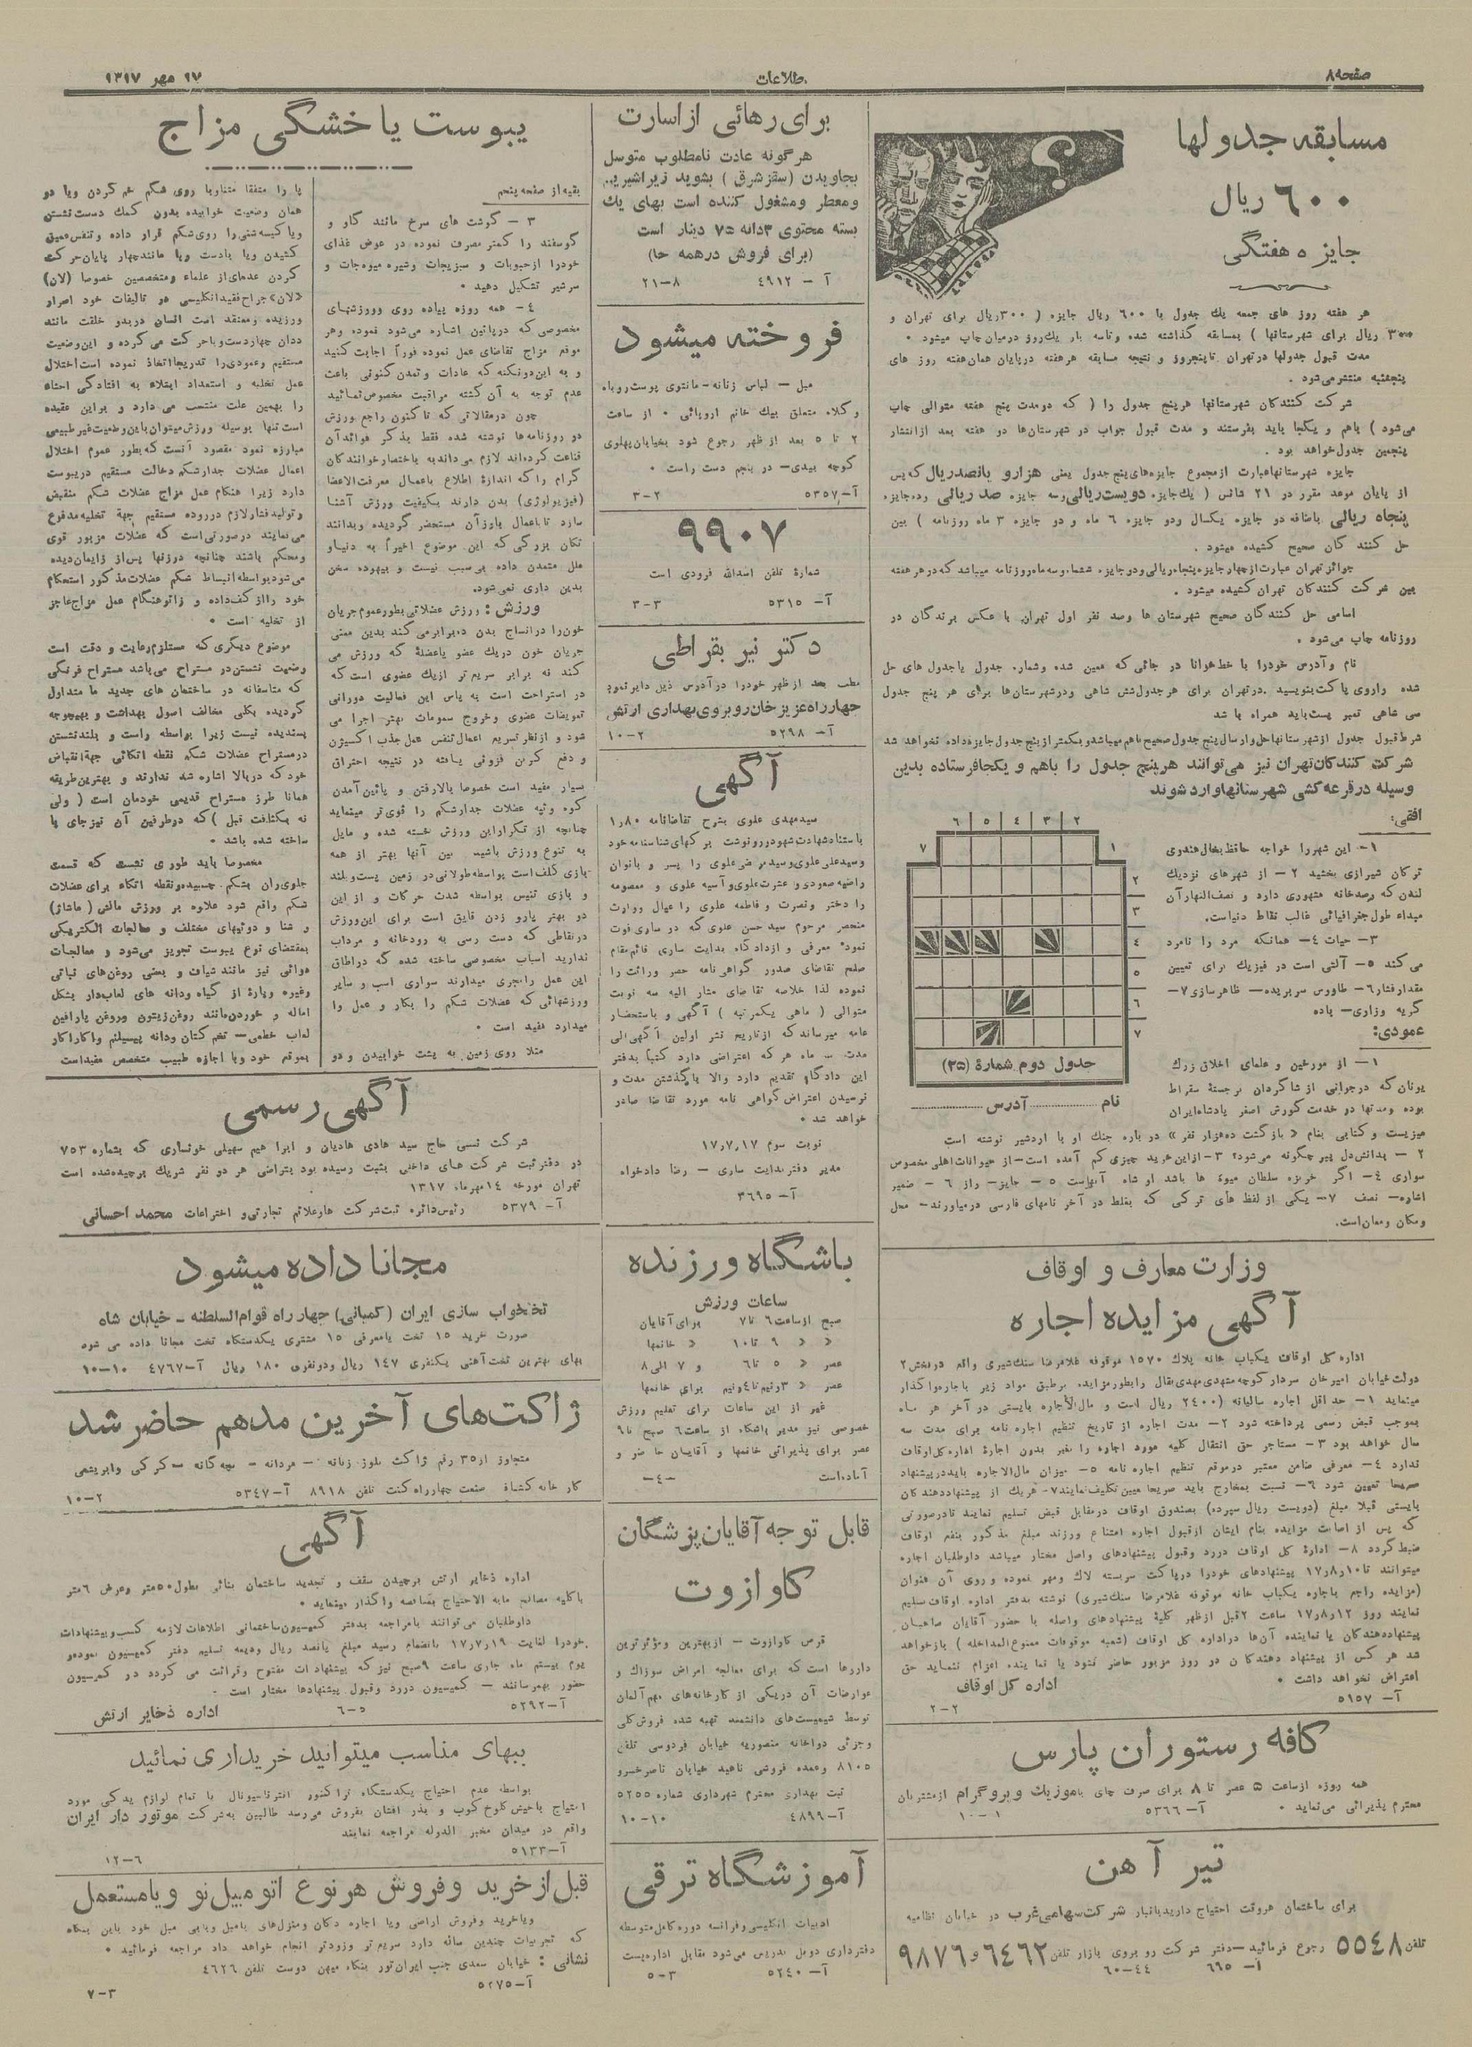 صفحه۸
اطلاعات
۱۷ مهر ۱۳۱۷
مسابقه جدولها
۶۰۰ ریال
جایزه هفتگی
هر هفته روز های جمعه یك جدول با ۶۰۰ ریال جایزه ( ۳۰۰ریال برای تهران و
۳۰۰ ریال برای شهرستانها ) بمسابقه گذاشته شده وتاسه بار یك‌روز درمیان چاپ میشود ۰
مدت قبول جدولها درتهران تاپنجروز و نتیجه مسابقه هرهفته درپایان همان‌هفته روز های
پنجشنبه منتشر می‌شود .
شرکت کنندکان شهرستانها هرپنج جدول را ( که دومدت پنج هفته متوالی چاپ
می‌شود ) باهم و یکجا باید بفرستند و مدت قبول جواب در شهرستان‌ها دو هفته بعد ازانتشار
پنجمین جدول‌خواهد بود .
جایزه شهرستانهاعبارت ازمجموع جایزه‌های‌پنج جدول یعنی هزارو پانصدریال که‌پس
از پایان موعد مقرر در ۲۱ شانس ( یك‌جایزه دویست‌ریالی‌رسه جایزه صد ریالی رده‌جایزه
پنجاه ریالی باضافه دو جایزه یکسال ودو جایزه ۶ ماه و دو جایزه ۳ ماه روزنامه ) بین
حل کنند کان صحیح کشیده میشود .
جوائز تهران عبارت ازچهارجایزه پنجاه‌ریالی‌ودرجایزه ششماه‌وسه‌ماه‌روزنامه میباشد که‌درهرهفته
بین شرکت کنندکان تهران کشیده میشود .
اسامی حل کنندکان صحیح شهرستان ها وصد نفر اول تهران با عکس برندگان در
روزنامه چاپ می‌شود .
نام وآدرس خودرا با خط‌خوانا در جائی که معین شده وشماره جدول یاجدول های حل
شده راروی پاکت‌بنویسید .درتهران برای هرجدول‌شش شاهی ودرشهرستان‌ها برای هر پنج جدول
سی شاهی تمبر پست‌باید همراه با شد
شرط‌قبول جدول ازشهرستانهاحل‌وارسال‌پنج‌جدول‌صحیح‌باهم‌میباشدوبکمترازپنج‌جدول‌جایزه‌داده نخواهد شد
شرکت کنندکان‌تهران نیز می‌توانند هرپنج جدول را باهم و یکجافرستاده بدین
وسیله درقرعه‌کشی شهرستانهاواردشوند
افقی:
۱- این شهررا خواجه حافظ‌بخال‌هندوی
ترکان شیرازی بخشید ۲ - از شهرهای نزدیك
لندن که رصدخانه مشهوری دارد و نصف‌النهارآن
مبداء طول‌جغرافیائی غالب نقاط دنیاست.
۳- حیات ۴- همانکه مرد را نامرد
می‌کند ۵- آلتی است در فیزیك برای تعیین
مقدارفشار ۶- طاووس سربریده- ظاهرسازی ۷-
گریه وزاری- یاده
۱ ۲ ۳ ۴ ۵ ۶ ۷
۲
۳
۴
۵
۶
۷
جدول دوم شمارهٔ (۳۵)
نام ............ آدرس ............
عمودی:
۱- از مورخین و علمای اخلاق‌زرك
یونان که درجوانی ازشاکردان برجستهٔ سقراط
بوده ومدتها در خدمت‌کورش اصغر پادشاه‌ایران
میزیست و کتابی بنام « بازگشت ده‌هزار نفر» درباره جنك او با اردشیر نوشته است
۲ - پدانش‌دل پیر چگونه می‌شود؟ ۳-ازاین‌خرید چیزی‌کم آمده است- از حیوانات‌اهلی‌مخصوص
سواری ۴- اگر خربزه سلطان میوه ها باشد او شاه آنهاست ۵ - جایز- راز ۶ - ضمیر
اشاره- نصف ۷- یکی ازلفظ های ترکی که بغلط در آخر نامهای فارسی درمیاورند- محل
ومکان ومعان‌است.
وزارت معارف و اوقاف
آگهی مزایده اجاره
اداره کل اوقاف یکباب خانه پلاك ۱۵۷۰ موقوفه غلامرضا سنك‌شیری واقع دربخش ۲
دولت‌خیابان امیرخان سردارکوچه‌مشهدی‌مهدی‌بقال رابطورمزایده برطبق مواد زیر باجاره‌واگذار
مینماید ۱- حداقل اجاره سالیانه (۲۴۰۰ ریال است و مال‌الأجاره بایستی در آخر هر ماه
بموجب قبض رسمی پرداخته شود ۲- مدت اجاره از تاریخ تنظیم اجاره نامه برای مدت سه
سال خواهد بود ۳- مستاجر حق انتقال کلیه مورد اجاره را بغیر بدون اجازهٔ اداره‌کل‌اوقاف
ندارد ۴- معرفی ضامن معتبر درموقع تنظیم اجاره نامه ۵- میزان مال‌الاجاره بایددرپیشنهاد
صریحا تعیین شود ۶- نسبت بمخارج باید صریحا معین‌تکلیف‌نمایند ۷-هریك از پیشنهاددهندکان
بایستی قبلا مبلغ (دویست ریال سپرده) بصندوق اوقاف درمقابل قبض تسلیم نمایند تادرصورتی
که پس از اصابت مزایده بنام ایشان ازقبول اجاره امتناع ورزند مبلغ مذکور بنفع اوقاف
ضبط‌گردد ۸- ادارهٔ کل اوقاف دررد وقبول پیشنهادهای واصل مختار میباشد داوطلبان اجاره
میتوانند تا۱۷٫۸٫۱۰ پیشنهادهای خودرا درپاکت سربسته لاك ومهر نموده و روی آن عنوان
(مزایده راجع باجاره یکباب خانه موقوفه غلامرضا سنك‌شیری) نوشته بدفتر اداره اوقاف‌تسلیم
نمایند روز ۱۷٫۸٫۱۲ ساعت ۲قبل ازظهر کلیهٔ پیشنهادهای واصله با حضور آقایان صاحبان
پیشنهاددهندکان یا نماینده آن‌ها دراداره کل اوقاف (شعبه موقوفات ممنوع‌المداخله ) بازخواهد
شد هر کس از پیشنهاد دهندکان در روز مزبور حاضر نشود یا نماینده اعزام ننماید حق
اعتراض نخواهد داشت ۰
اداره کل اوقاف
آ- ۵۱۵۷
۲-۲
کافه رستوران پارس
همه روزه ازساعت ۵ عصر تا ۸ برای صرف چای باموزیك وپروگرام ازمشتریان
محترم پذیرائی می‌نماید ۰
آ- ۵۳۶۶
۱-۱۰
تیر آهن
برای ساختمان هروقت احتیاج داریدبانبار شرکت‌سهامی‌غرب در خیابان نظامیه
تلفن ۵۵۴۸ رجوع فرمائید-دفتر شرکت رو بروی بازار تلفن ۶۴۶۲ و۹۸۷۶
آ- ۶۶۵
۴۴-۶۰
برای رهائی ازاسارت
هرگونه عادت نامطلوب متوسل
بجاویدن (سقزشرق ) بشوید زیراشیرین
ومعطر ومشغول کننده است بهای یك
بسته محتوی ۳دانه ۷۵ دینار است
(برای فروش درهمه جا)
آ - ۴۹۱۲
۸-۲۱
فروخته میشود
مبل - لباس زنانه-مانتوی پوست‌روباه
وکلاه متعلق بیك خانم اروپائی ۰ از ساعت
۲ تا ۵ بعد از ظهر رجوع شود بخیابان‌پهلوی
کوچه بیدی- در پنجم دست راست ۰
آ-۵۳۵۷
۲-۳
۹۹۰۷
شمارهٔ تلفن اسدالله فرودی است
آ- ۵۳۱۵
۳-۳
دکتر نیر بقراطی
مطب بعد ازظهر خودرا درآدرس ذیل دایرنموده
چهارراه‌عزیزخان‌روبروی‌بهداری ارتش
آ- ۵۲۹۸
۲-۱۰
آگهی
سیدمهدی علوی بشرح تقاضانامه ۱٫۸۰
باستنادشهادت‌شهودورونوشت برگهای‌شناسنامه‌خود
وسیدعلی‌علوی‌وسیدمرضی‌علوی‌را پسر و بانوان
راضیه‌صعودی‌و عشرت‌علوی‌و آسیه علوی و معصومه
را دختر ونصرت و فاطمه علوی را عیال ووارث
منحصر مرحوم سیدحسن علوی که در ساری‌فوت
نموده معرفی و ازدادگاه بدایت ساری قائم‌مقام
صلح تقاضای صدور گواهی‌نامه حصر وراثت را
نموده لذا خلاصه تقاضای مشار الیه سه نوبت
متوالی ( ماهی یکمرتبه ) آگهی و باستحضار
عامه میرساند که ازتاریخ نشر اولین آگهی‌الی
مدت سه ماه هرکه اعتراضی دارد کتباً بدفتر
این دادگاه تقدیم دارد والا باگذشتن مدت و
نرسیدن اعتراض‌گواهی نامه مورد تقاضا صادر
خواهد شد ۰
نوبت سوم ۱۷٫۷٫۱۷
مدیر دفتربدایت ساری - رضا دادخواه
آ- ۳۶۹۵
باشگاه ورزنده
ساعات ورزش
صبح ازساعت ۶ تا۷ برای‌آقایان
« « ۹ تا۱۰ « خانمها
عصر « ۵ تا۶ و ۷ الی۸
عصر « ۳ونیم‌تا۴ونیم برای خانمها
غیر از این ساعات برای تعلیم ورزش
خصوصی نیز مدیرباشگاه از ساعت۶ صبح تا۹
عصر برای پذیرائی خانمها و آقایان حاضر و
آماده‌است
-۴-
قابل توجه آقایان‌پزشگان
کاوازوت
قرص کاوازوت - ازبهترین ومؤثرترین
داروها است‌که برای معالجه امراض سوزاك و
عوارضات آن دریکی از کارخانه‌های مهم‌آلمان
توسط شیمیست‌های دانشمند تهیه شده فروش‌کلی
وجزئی دواخانه منصوریه خیابان فردوسی تلفن
۸۱۰۵ وعمده فروشی ناهید خیابان ناصرخسرو
ثبت بهداری محترم شهرداری شماره ۵۲۵۵
آ-۴۸۹۹
۱۰-۱۰
آموزشگاه ترقی
ادبیات انگلیسی‌وفرانسه دوره‌کامل‌متوسطه
دفترداری دوبل تدریس می‌شود مقابل اداره‌پست
آ- ۵۲۴۰
۳-۵
یبوست یاخشگی مزاج
بقیه‌از صفحه‌پنجم
۳ - گوشت های سرخ مانند گاو و
گوسفند را کمتر مصرف نموده در عوض غذای
خودرا ازحبوبات و سبزیجات وشیره میوه‌جات و
سرشیر تشکیل دهید ۰
۴- همه روزه پیاده روی وورزشهای
مخصوصی‌که درپائین اشاره می‌شود نموده وهر
موقع مزاج تقاضای عمل نموده فوراً اجابت کنید
و به این‌دونکته‌که عادات و تمدن کنونی باعث
عدم توجه به آن گشته مراقبت مخصوص‌نمائید
چون درمقالاتی که تاکنون راجع بورزش
در روزنامه‌ها نوشته شده فقط بذکر فوائدآن
قناعت کرده‌اند لازم می‌داند به باختصارخوانندکان
گرام راکه اندازهٔ اطلاع باعمال معرفت‌الاعضا
(فیزیولوژی) بدن دارند بکیفیت ورزش آشنا
سازد تاباعمال بارزآن مستحضر گردیده وبدانند
تکان بزرگی که این موضوع اخیراً به دنیاو
ملل متمدن داده بی‌سبب نیست و بیهوده سخن
بدین داری نمی‌شود.
ورزش: ورزش عضلاتی بطورعموم‌جریان
خون‌را درانساج بدن ده‌برابرمی‌کند بدین معنی
جریان خون دریك عضو یاعضلهٔ که ورزش می
کند نه برابر سریع‌تر ازیك عضوی است‌که
در استراحت است به پاس این فعالیت دورانی
تعویضات عضوی وخروج سمومات بهتر اجرا می
شود و ازنظر تسریع اعمال تنفس عمل‌جذب اکسیژن
و دفع کربن فزونی یافته در نتیجه احتراق
بسیار مفید است خصوصا بالارفتن و پائین‌آمدن
کوه وتپه عضلات جدارشکم را قوی‌تر مینماید
چنانچه از تکراراین ورزش خسته شده و مایل
به تنوع ورزش باشید بین آنها بهتر از همه
بازی گلف‌است بواسطه‌طولانی‌در زمین پست‌وبلند
و بازی تنیس بواسطه شدت حرکات و ازاین
دو بهتر پارو زدن قایق است برای این‌ورزش
درنقاطی که دست رسی به رودخانه و مرداب
ندارید اسباب مخصوصی ساخته شده که دراطاق
این عمل رامجری میدارند سواری اسب و سایر
ورزشهائی‌که عضلات شکم را بکار و عمل وا
میدارد مفید است ۰
مثلا روی زمین به پشت خوابیدن و دو
پا را متفقا متناوبا روی شکم خم کردن ویا در
همان وضعیت خوابیده بدون کمك دست‌نشستن
ویاکیسه‌شنی‌را روی‌شکم قرار داده وتنفس‌عمیق
کشیدن ویا بادست وپا مانندچهار پایان‌حرکت
کردن عده‌ای‌از علماء ومتخصصین خصوصا (لان)
«لان» جراح‌فقیدانگلیسی در تالیفات خود اصرار
ورزیده ومعتقد است انسان دربدو خلقت مانند
ددان چهاردست‌وپاحرکت می‌کرده و این‌وضعیت
مستقیم وعمودی‌را تدریجااتخاذ نموده است‌اختلال
عمل تخلیه و استعداد ابتلاء به افتادگی احشاء
را بهمین علت منتسب می دارد و براین عقیده
است‌تنها بوسیله ورزش‌میتوان‌بااین‌وضعیت‌غیرطبیعی
مبارزه نمود مقصود آنست که‌بطور عموم اختلال
اعمال عضلات جدارشکم دخالت مستقیم دریبوست
دارد زیرا هنگام عمل مزاج عضلات شکم منقبض
وتولیدفشارلازم درروده مستقیم جهة تخلیه‌مدفوع
می‌نمایند درصورتی‌است که عضلات مزبور قوی
ومحکم باشند چنانچه درزنها پس‌از زایمان‌دیده
می‌شودبواسطه‌انبساط شکم عضلات‌مذکور استحکام
خود رااز‌کف‌داده و زائوهنگام عمل مزاج‌عاجز
از تخلیه است ۰
موضوع دیگری‌که مستلزم‌رعایت و دقت است
وضعیت نشستن‌در مستراح می‌باشد مستراح فرنگی
که متاسفانه در ساختمان های جدید ما متداول
گردیده بکلی مخالف اصول بهداشت و بهیچوجه
پسندیده نیست زیرا بواسطه راست و بلندنشستن
درمستراح عضلات شکم نقطه اتکائی جهةانقباض
خودکه دربالا اشاره شد ندارند و بهترین‌طریقه
همانا طرز مستراح قدیمی خودمان است ( ولی
نه بکثافت قبل ) که درطرفین آن نیزجای پا
ساخته شده باشد ۰
مخصوصا باید طوری نشست که قسمت
جلوی‌ران بشکم چسبیده‌ونقطه اتکاء برای‌عضلات
شکم واقع شود علاوه بر ورزش مالش ( ماشاژ)
و شنا و دوشهای مختلف و معالجات الکتریکی
بمقتضای نوع یبوست تجویز می‌شود و معالجات
دوائی نیز مانند شیاف و بعضی روغن‌های نباتی
وغیره وپارهٔ از گیاه ودانه های لعاب‌دار بشکل
اماله و خوردن‌مانند روغن‌زیتون وروغن پارافین
لعاب خطمی- تخم‌کتان ودانه پیسیلئم واکاراکار
بموقع خود وبا اجازه طبیب متخصص مفیداست
آگهی رسمی
شرکت نسبی حاج سید هادی هادیان و ابراهیم سهیلی خونساری که بشماره ۷۵۳
در دفترثبت شرکت های داخلی بثبت رسیده بود بتراضی هر دو نفر شریك برچیده‌شده است
تهران مورخه ۱۴مهرماه ۱۳۱۷
آ- ۵۳۷۹ رئیس‌دائره ثبت‌شرکت هاوعلائم تجارتی‌و اختراعات محمد احسانی
مجانا داده میشود
تختخواب سازی ایران (کمپانی) چهارراه قوام‌السلطنه - خیابان شاه
صورت خرید ۱۵ تخت یامعرفی ۱۵ مشتری یکدستگاه تخت مجانا داده می شود
بهای بهترین تخت‌آهنی یکنفری ۱۴۷ ریال ودونفری ۱۸۰ ریال آ-۴۷۶۷ ۱۰-۱۰
ژاکت‌های آخرین مدهم حاضرشد
متجاوز از۳۵ رقم ژاکت بلوز زنانه - مردانه - بچه‌گانه - کرکی وابریشمی
کارخانه کشباف صنعت چهارراه‌کنت تلفن ۸۹۱۸ آ-۵۳۴۷
۲-۱۰
آگهی
اداره ذخایر ارتش برچیدن سقف و تجدید ساختمان بنائی بطول۵۰متر وعرض ۶متر
باکلیه مصالح مابه الاحتیاج بمناقصه واگذار مینماید ۰
داوطلبان می‌توانند بامراجعه بدفتر کمیسیون‌ساختمانی اطلاعات لازمه کسب‌وپیشنهادات
خودرا لغایت ۱۷٫۷٫۱۹ بانضمام رسید مبلغ پانصد ریال ودیعه تسلیم دفتر کمیسیون نموده‌و
یوم بیستم ماه جاری ساعت ۹صبح نیز که پیشنهادات مفتوح وقرائت می گردد در کمیسیون
حضور بهمرسانند - کمیسیون دررد وقبول پیشنهادها مختار است ۰
آ-۵۲۹۲
۵-۶
اداره ذخایر ارتش
ببهای مناسب میتوانید خریداری نمائید
بواسطه عدم احتیاج یکدستگاه تراکتور انترناسیونال با تمام لوازم یدکی مورد
احتیاج باخیش‌کلوخ‌کوب و بذر افشان بفروش می‌رسد طالبین به‌شرکت موتور دار ایران
واقع در میدان مخبر الدوله مراجعه نمایند
آ-۵۱۳۳
۶-۱۲
قبل‌از‌خرید وفروش هرنوع اتومبیل‌نو ویامستعمل
ویاخرید وفروش اراضی ویا اجاره دکان ومنزل‌های بامبل وبابی مبل خود باین بنگاه
که تجربیات چندین ساله دارد سریع‌تر وزودتر انجام خواهد داد مراجعه فرمائید ۰
نشانی : خیابان سعدی جنب ایران‌تور بنگاه میهن دوست تلفن ۴۶۲۶
آ-۵۲۷۵
۳-۷